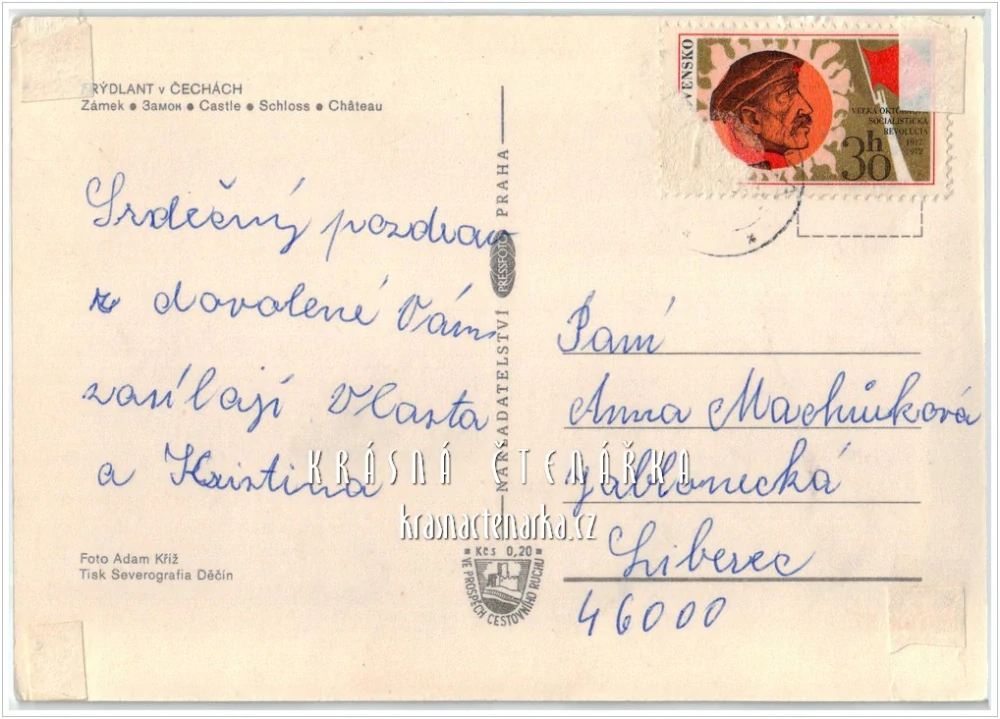 RÝDLANT v ČECHÁCH
Zámek ● Замок ● Castle ● Schloss ● Château
Srdečný pozdrav
z dovolené Vám
zasílají Vlasta
a Kristina
Foto Adam Kříž
Tisk Severografia Děčín
NAKLADATELSTVÍ PRESSFOTO PRAHA
Kčs 0,20
VE PROSPĚCH CESTOVNÍHO RUCHU
VENSKO
VEĽKÁ OKTÓBROVÁ
SOCIALISTICKÁ
REVOLÚCIA
1917
1972
30h
Paní
Anna Machůková
Jablonecká
Liberec
46000
KRÁSNÁ ČTENÁŘKA
krasnactenarka.cz